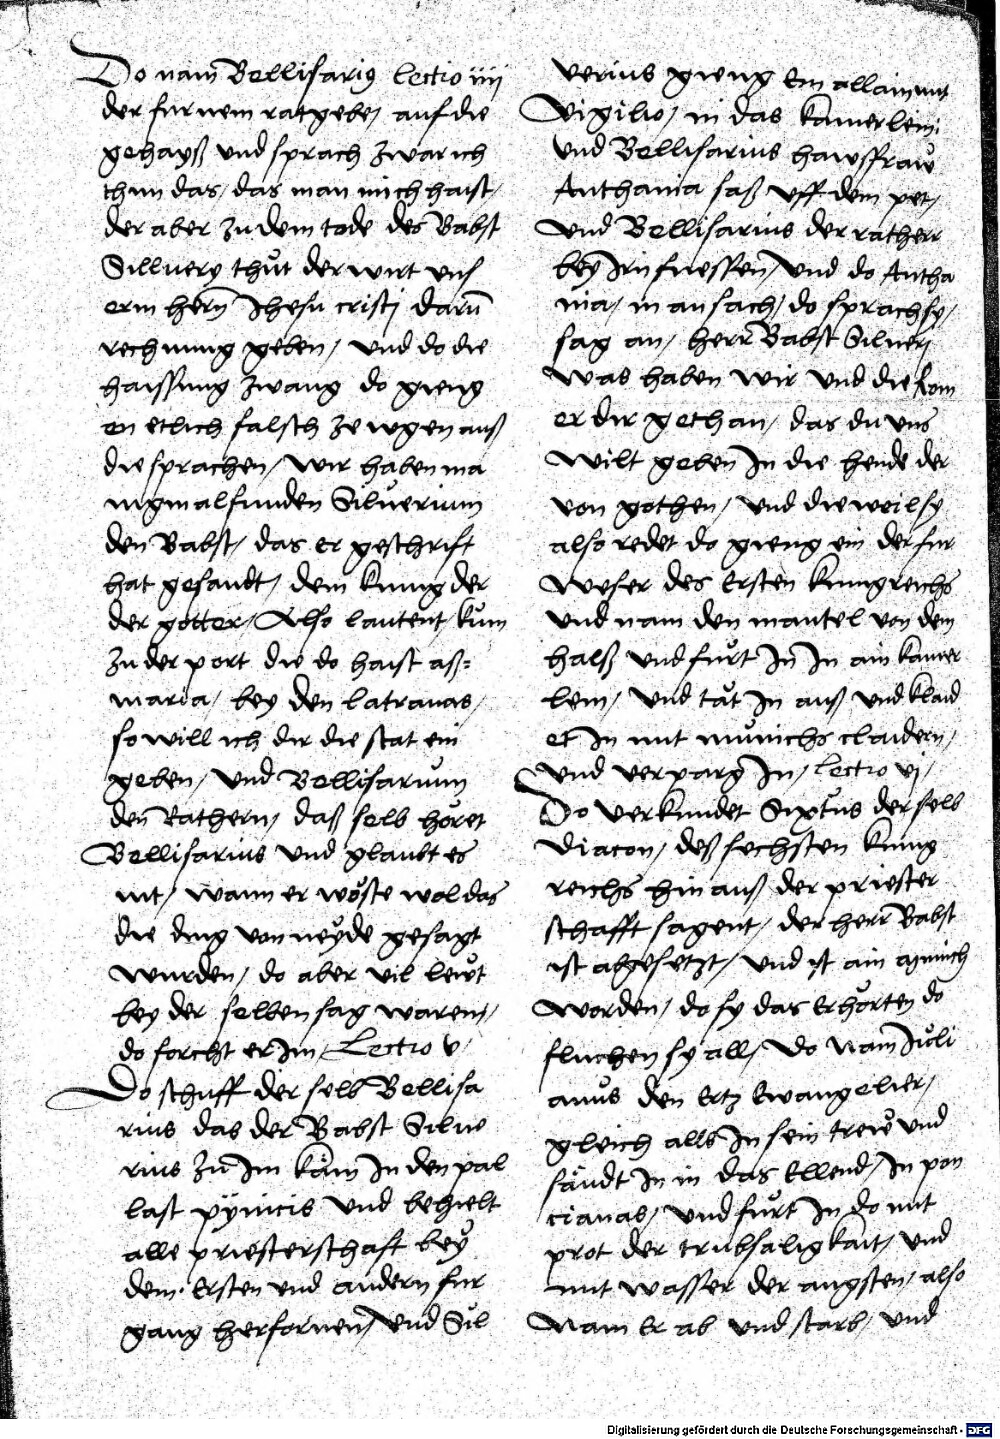 Do nam Bellisarius lectio iiij
der fur nem ratgeben auf die
gehayß und sprach zwar ich
thun das, das man mich haist,
der aber zu dem tode des Babst
Silluery thut der wirt uns
erm hern Jhesu cristi darum
rechnung geben, und do die
haissung zwang do gieng
en etlich falsch zewgen auß
die sprachen, wir haben ma
nigmal funden Siluerium
den Babst, das er geschrift
hat gesandt, dem kunig der
der gotter, Also lautent, kum
zu der port die do haist aß=
maria, bey den latranas,
so will ich dir die stat ein
geben, und Bellisarium
den Rathern, daß selb horet
Bellisarius und glaubt es
nit, wann er woste wol das
die ding von neyde gesagt
wurden, do aber vil lewt
bey der selben sag waren,
do forcht er im, Lectio v,
Do schuff der selb Bellisa
rius das der Babst Silue
rius zu im kam in den pal
last pyincis und behielt
alle priesterschaft bey
dem Ersten und andern fur
gang herfornen, und Sil
verius gieng Ein allain mit
Vigilio, in das kamerlein
und Bellisarius hawsfraw
Anthania saß uff dem pet,
und Bellisarius der ratherr
bey irn fuessen, und do Antha
nia, in an sach, do sprach sy,
sag an, herr Babst Silueri
was haben wir und die Rom
er dir gethan, das du uns
wilt geben in die hende der
von gothen, und die weil sy
also redet do gieng ein der fur
weser des Ersten kunigreichs
und nam den mantel von dem
halß und furt in in ain kamer
lein, und tat in auß und klaid
et in mit munichs claidern,
und verparg in, lectio vj,
Do verkundet Sixtus der selb
diacon, deß sechsten kunig
reichs hin auß der priester
schafft sagent, der herr Babst
ist abgesetzt, und ist ain munich
worden, do sy das Erhorten do
fluchen sy all, Do nam Juli
anus den Ertz Ewangelier,
gleich alls in sein trew und
sandt in in das Ellend, in pon
cianas, und furt in do mit
prot der trubsaligkait, und
mit wasser der angsten, also
nam Er ab und starb, und
Digitalisierung gefördert durch die Deutsche Forschungsgemeinschaft - DFG